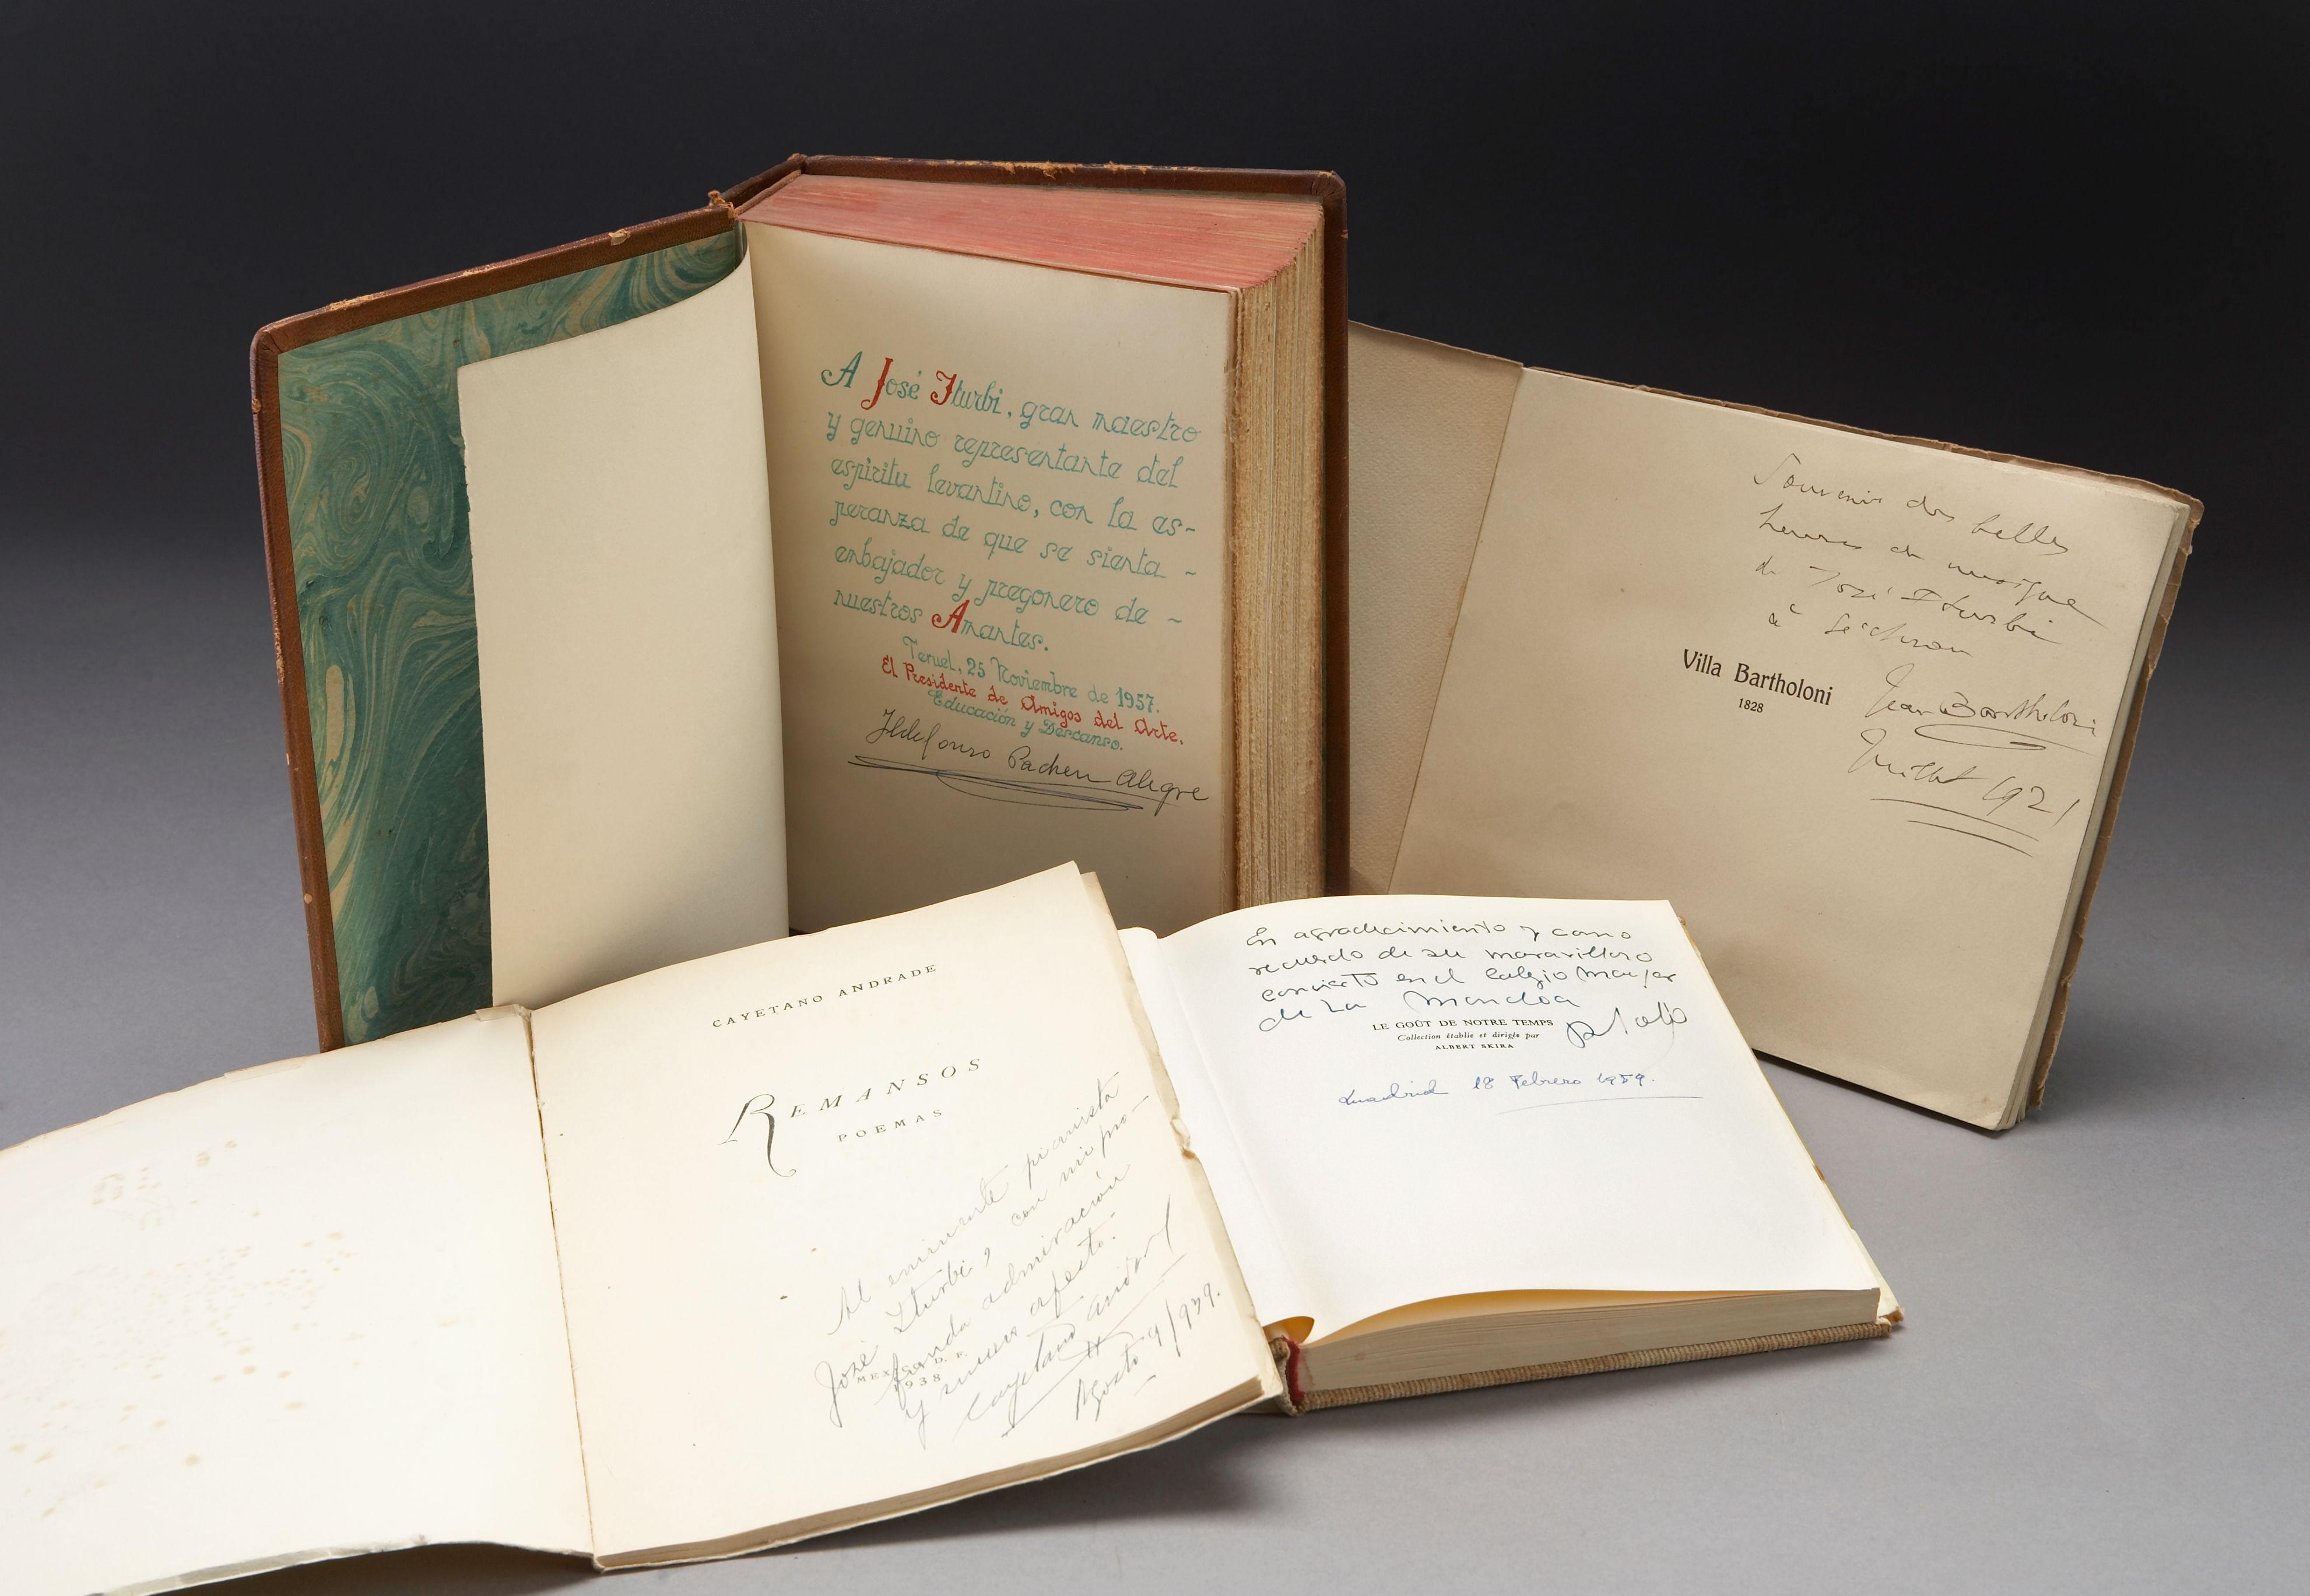 A José Iturbi, gran maestro
y genuino representante del
espíritu levantino, con la es-
peranza de que se sienta -
enbajador y pregonero de -
nuestros Amantes.
Teruel, 25 Noviembre de 1957.
El Presidente de Amigos del Arte.
Educación y Descanso.
Ildefonso Pachen Alegre
Souvenir des belles
heures de musique
de José Iturbi
à Séchron
Villa Bartholoni
1828
Jean Bartholoni
Juillet 1921
CAYETANO ANDRADE
REMANSOS
POEMAS
Al eminente pianista
José Iturbi, con mi pro-
funda admiración
y sincero afecto.
Cayetano Andrade
Agosto 9/939.
MEXICO D. F.
1938
En agradecimiento y como
recuerdo de su maravilloso
concierto en el Colegio Mayor
de La Moncloa
LE GOÛT DE NOTRE TEMPS
Collection établie et dirigée par
ALBERT SKIRA
Madrid 18 Febrero 1959.